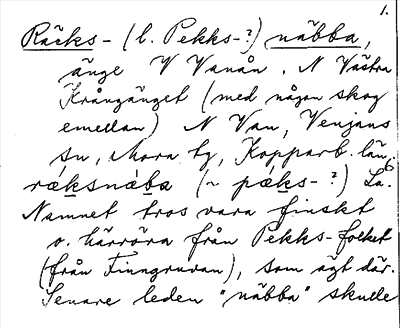 1.
Räcks- (l. Pekks-?) näbba,
änge V Vanån. N Västra
Krångänget (med någon skog
emellan) N Van, Venjans
sn, Mora tg, Kopparb. län.
ræksnæba (~ pæks-?) La.
Namnet tros vara finskt
o. härröra från Pekks-folket
(från Finngruvan), som ägt där.
Senare leden "näbba" skulle